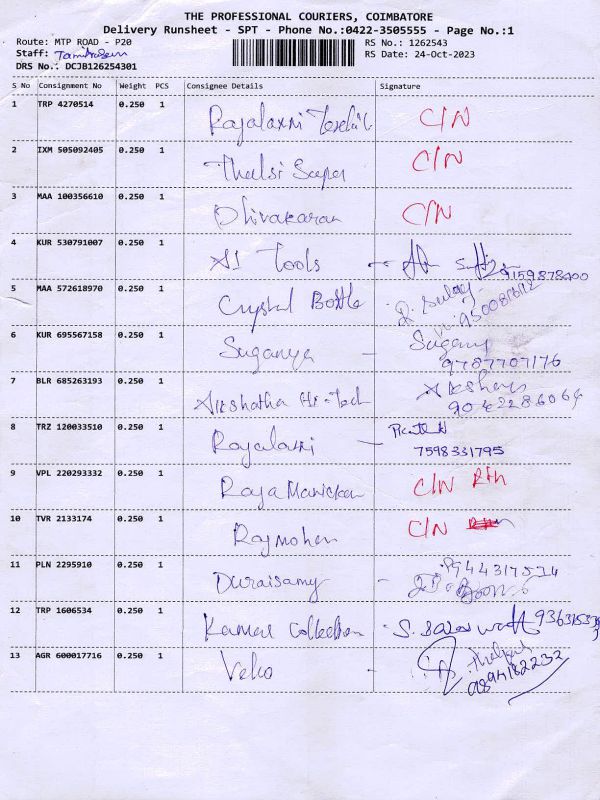 THE PROFESSIONAL COURIERS, COIMBATORE
Delivery Runsheet - SPT - Phone No.:0422-3505555 - Page No.:1
Route: MTP ROAD - P20 RS No.: 1262543
Staff: RS Date: 24-Oct-2023
DRS No.: DCJB126254301
S No Consignment No Weight PCS Consignee Details Signature
1 TRP 4270514 0.250 1 Rajalaxmi C/N
2 IXM 505092405 0.250 1 Thulsi Super C/N
3 MAA 100356610 0.250 1 Dhivakaran C/N
4 KUR 530791007 0.250 1 AI Tools - 9159878400
5 MAA 572618970 0.250 1 Crystal Bottle
6 KUR 695567158 0.250 1 Suganya - Sugany
9787707176
7 BLR 685263193 0.250 1 Akshatha Hi-Tech
9042286064
8 TRZ 120033510 0.250 1 Rajalaxmi -
7598331795
9 VPL 220293332 0.250 1 Raja Manickam C/N Rtn
10 TVR 2133174 0.250 1 Rajmohan C/N
11 PLN 2295910 0.250 1 Duraisamy -
12 TRP 1606534 0.250 1 Kamal Collection -
13 AGR 600017716 0.250 1 Veko -
9894182232